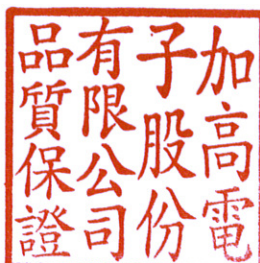 加高電
子股份
有限公司
品質保證